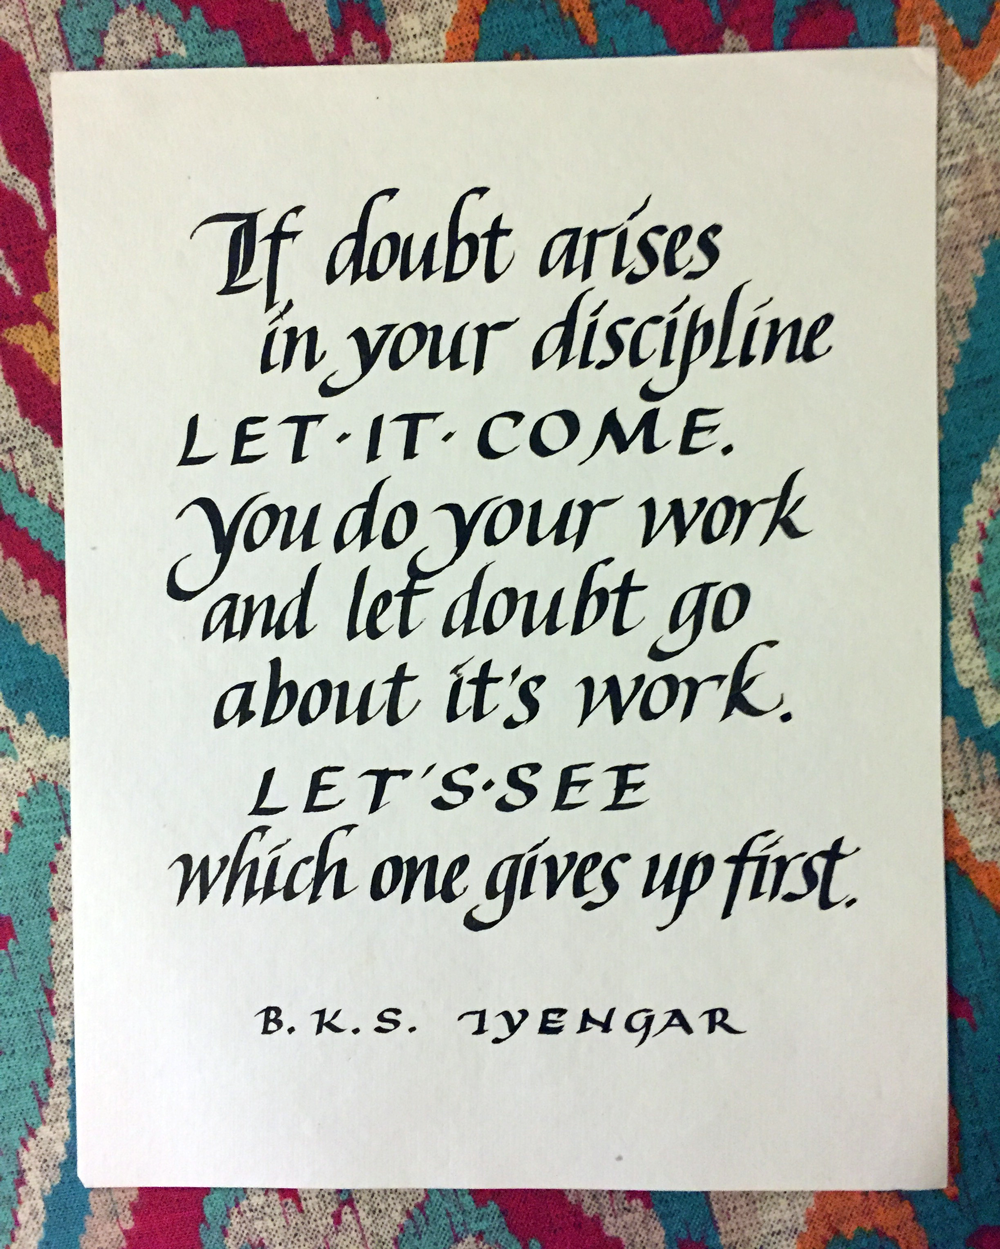 If doubt arises
in your discipline
LET·IT·COME.
You do your work
and let doubt go
about it's work.
LET'S·SEE
which one gives up first.
B.K.S. IYENGAR